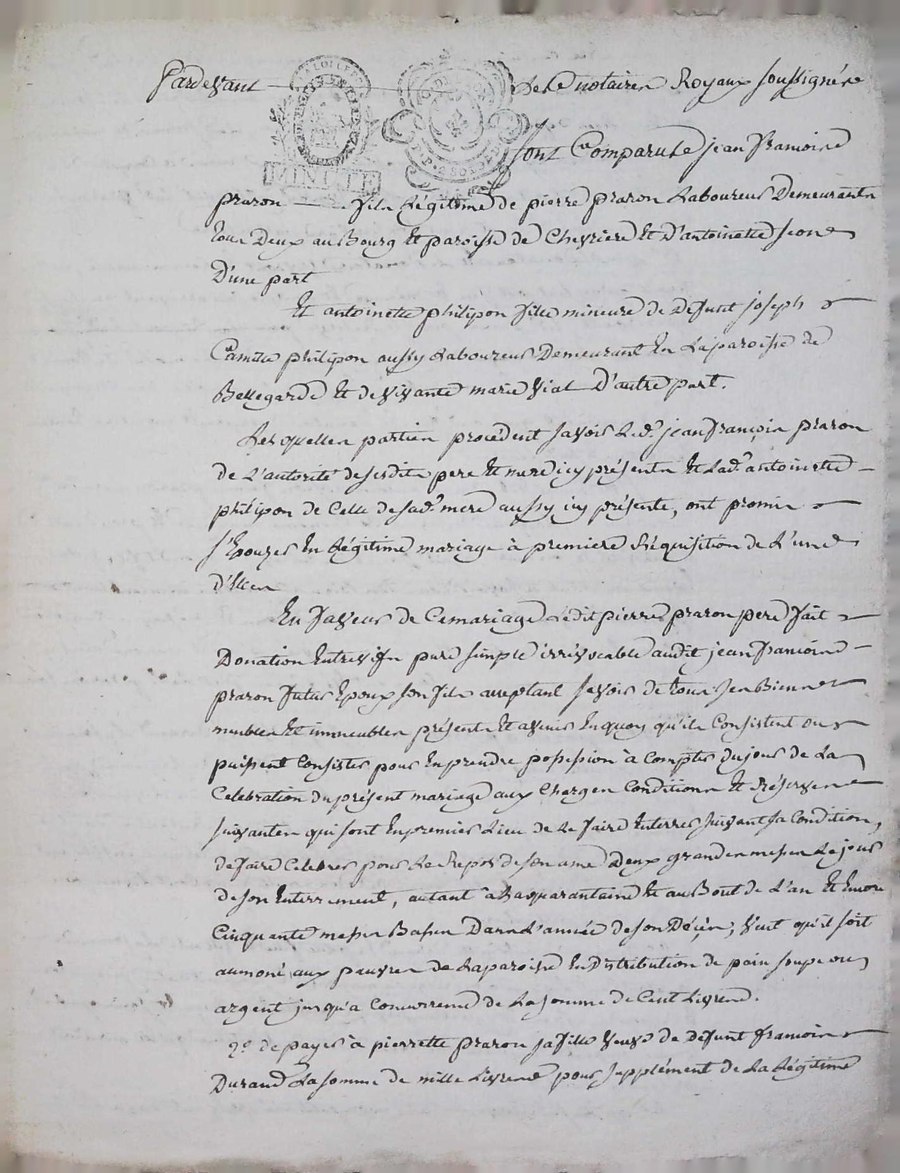 Pardevant Le notaires Royaux soussignés
LA LOI LE ROI
MINUTE
sont Comparus jean françois
praron fils légitime de pierre praron Laboureur Demeurants
tous Deux au Bourg Et paroisse de Chevriere Et D'antoinette
D'une part
Et antoinette philipon fille mineure de Defunt joseph
Camille philipon aussy Laboureur Demeurant En La paroisse de
Bellegarde Et de vivante marie vial D'autre part.
Lesquelles parties procedent savoir Led. jean françois praron
de L'autorité desesdits pere Et mere icy présents Et Lad. antoinette
philipon de Celle de sad. mere aussy icy présente, ont promis
s'Epouser En légitime mariage à premiere Réquisition de L'une
d'Elles
En faveur de Ce mariage Ledit pierre praron pere fait
Donation Entrevifs pure simple irrévocable audit jean françois
praron futur Epoux son fils acceptant savoir de tous ses Biens
meubles Et immeubles présents Et avenir En quoy qu'ils Consistent ou
puissent Consister pour En prendre possession à Compter du jour de La
Celebration du présent mariage aux Charges Conditions Et Réserves
suivantes qui sont En premier Lieu de Le faire Enterrer suivant sa Condition,
de faire Celebrer pour Le Repos de son ame Deux grandes messes Le jour
de son Enterrement, autant à La quarantaine Et au Bout de L'an Et Encore
Cinquante messes Basses Dans L'année de son Décès, veut qu'il soit
aumoné aux pauvres de La paroisse En Distribution de pain soupe ou
argent jusqu'a Concurrence de La somme de Cent Livres.
2º. de payer à pierrette praron sa fille veuve de Defunt françois
Durand La somme de mille Livres pour supplément de La Légitime